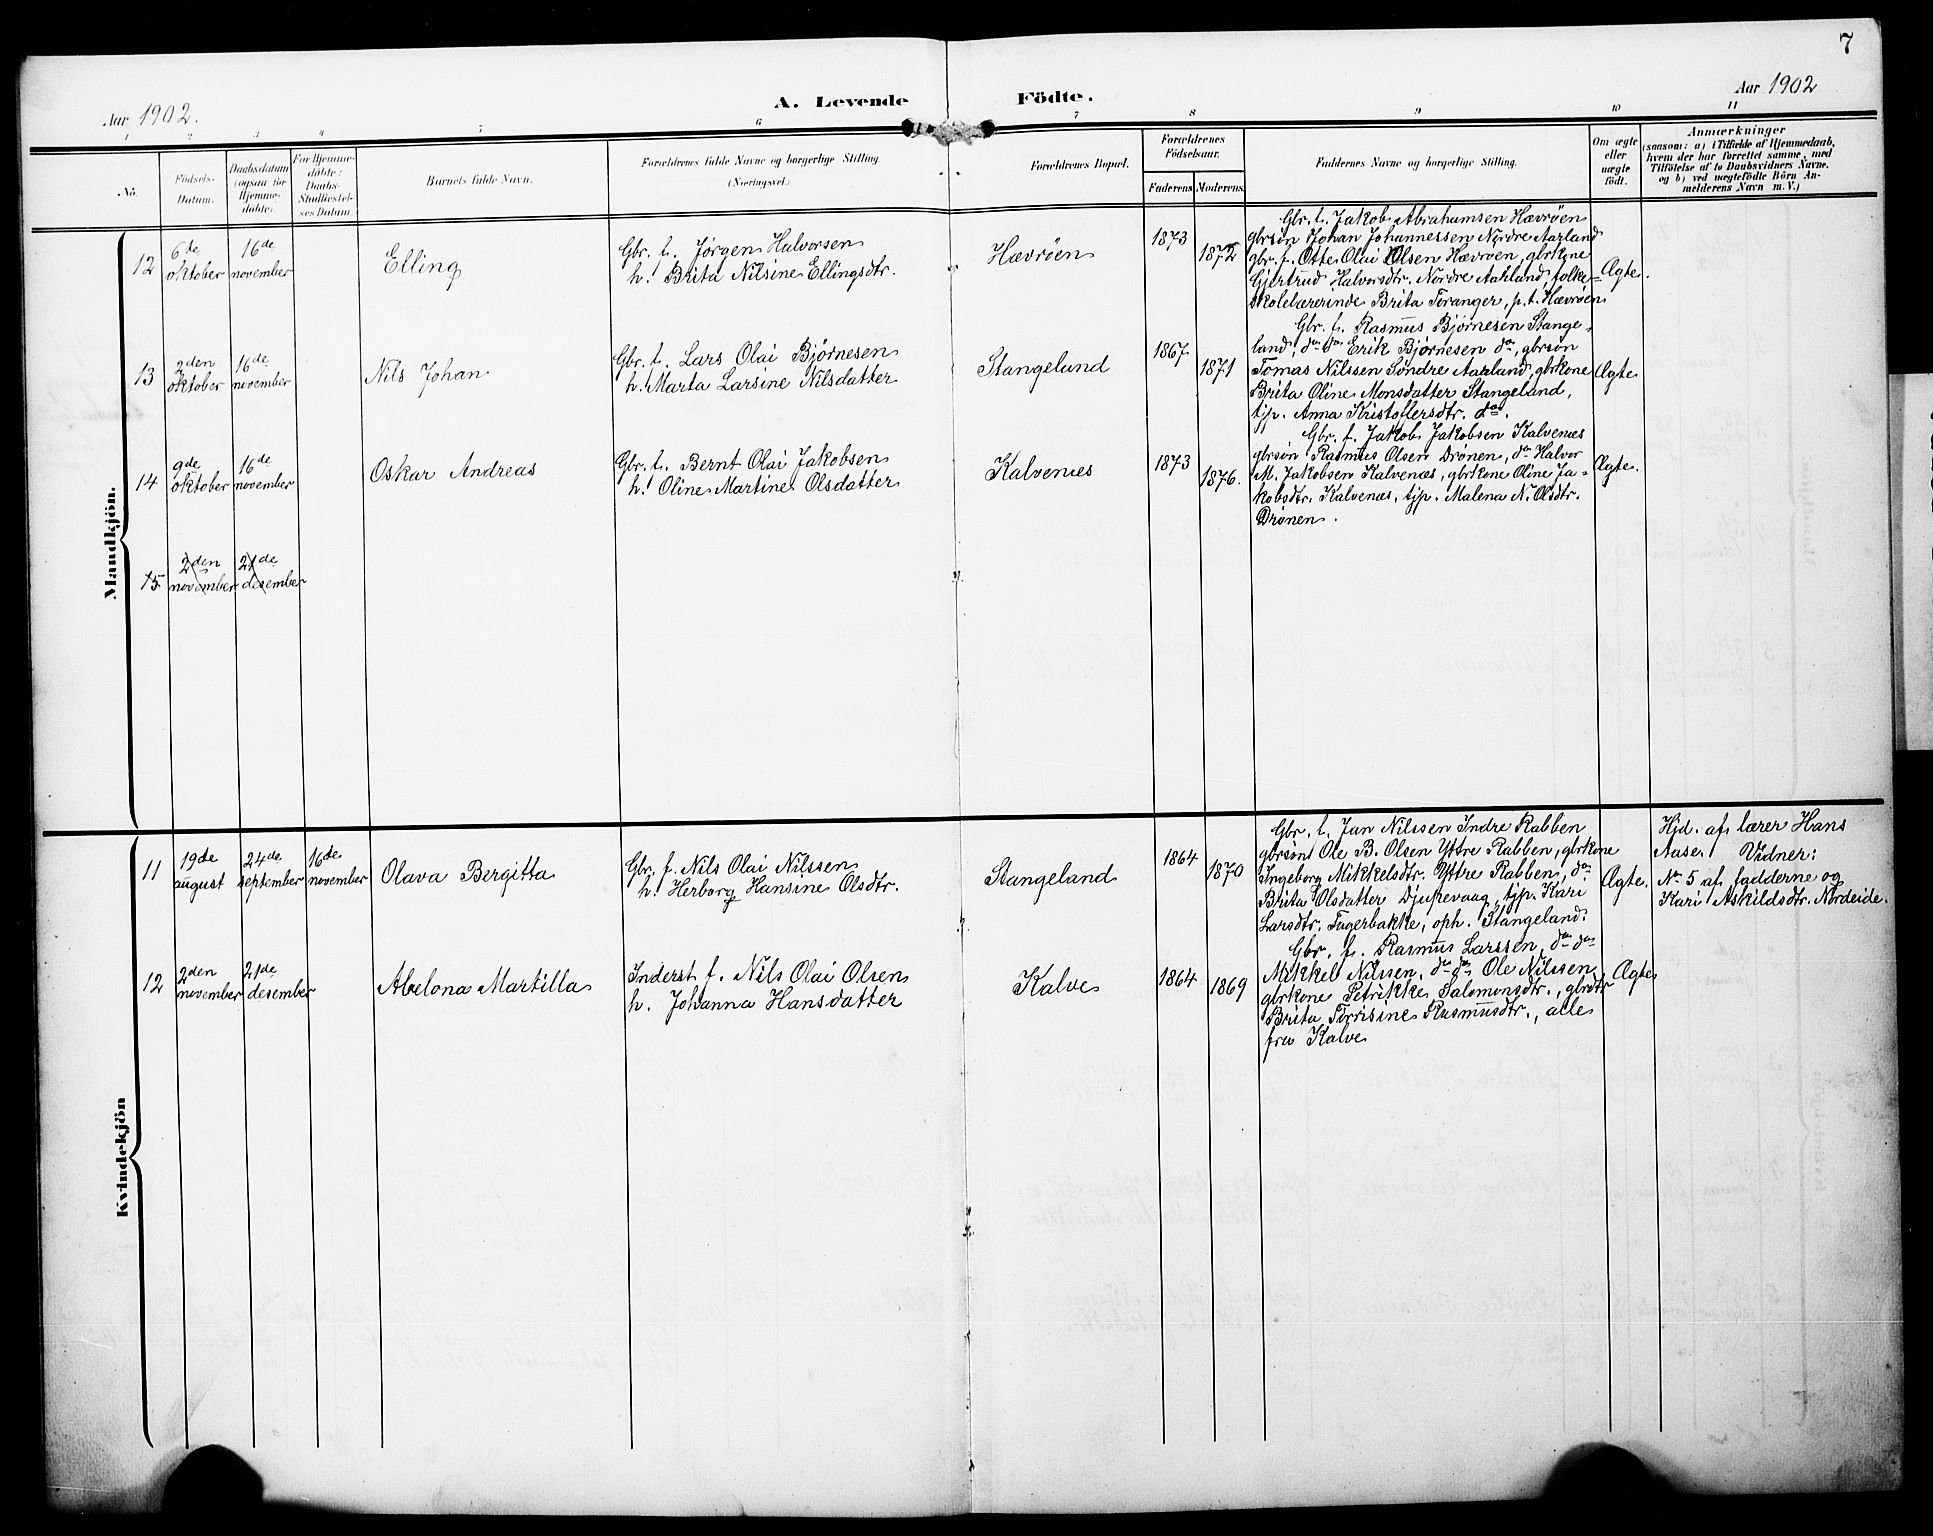 7
Aar 1902.
A. Levende Födte.
Aar 1902
1 2 3 4 5 6 7 8 9 10 11
No.
Födsels-
Datum.
Daabsdatum
(ogsaa for
Hjemme-
döbte).
For Hjemme-
döbte:
Daabs-
Stadfæstel-
ses Datum
Barnets fulde Navn.
Forældrenes fulde Navne og borgerlige Stilling.
(Næringsvei.)
Forældrenes Bopæl.
Forældrenes
Födselsaar.
Faderens. Moderens.
Faddernes Navne og borgerlige Stilling.
Om ægte
eller
uægte
födt.
Anmærkninger
(saasom: a) i Tilfælde af Hjemmedaab,
hvem der har forrettet samme, med
Tilföielse af to Daabsvidners Navne.
og b) ved uægtefödte Börn An-
melderens Navn m. V.)
Mandkjön.
12
6te
oktober
16de
november
Elling
Gbr. f. Jørgen Halvorsen
h. Brita Nilsine Ellingsdtr.
Hævrøen
1873
1872
Gbr. f. Jakob Abrahamsen Hævrøen
gbrsøn Johan Johannessen Nordre Aarland
gbr. f. Otte Olai Olsen Hævrøen, gbrkone
Gjertrud Halvorsdtr. Nordre Aarland, folke-
skolelærerinde Brita Toranger, p.t. Hævrøen
Ægte.
13
2den
oktober
16de
november
Nils Johan
Gbr. f. Lars Olai Bjørnesen
h. Marta Larsine Nilsdatter
Stangeland
1867
1871
Gbr. f. Rasmus Bjørnesen Stange-
land, do do Erik Bjørnesen do, gbrsøn
Tomas Nilssen Søndre Aarland, gbrkone
Brita Oline Monsdatter Stangeland,
tjp. Anna Kristoffersdtr. do.
Ægte
14
9de
oktober
16de
november
Oskar Andreas
Gbr. f. Bernt Olai Jakobsen
h. Oline Martine Olsdatter
Kalvenæs
1873
1876.
Gbr. f. Jakob Jakobsen Kalvenæs
gbrsøn Rasmus Olsen Drønen, do Halvor
M. Jakobsen Kalvenæs, gbrkone Oline Ja-
kobsdtr. Kalvenæs, tjp. Malena N. Olsdtr.
Drønen.
Ægte.
15
2den
november
21de
desember
Kvindekjön
11
19de
august
24de
september
16de
november
Olava Bergitta
Gbr. f. Nils Olai Nilssen
h. Herborg Hansine Olsdtr.
Stangeland
1864
1870
Gbr. f. Jan Nilssen Indre Rabben
gbrsøn Ole B. Olsen Yttre Rabben, gbrkone
Ingeborg Mikkelsdtr. Yttre Rabben, do
Brita Olsdatter Djupevaag, tjp. Kari
Larsdtr. Fagerbakke, oph. Stangeland.
Ægte.
Hjd. af lærer Hans
Aase. Vidner:
No 5 af fadderne og
Kari Askildsdtr. Nordeide.
12
2den
november
21de
desember
Abelona Martilla
Inderst f. Nils Olai Olsen
h. Johanna Hansdatter
Kalve
1864
1869
Gbr. f. Rasmus Larssen, do do
Mikkel Nilssen, do do Ole Nilssen
gbrkone Petrikke Salomonsdtr., gbrdtr
Brita Torrisine Rasmusdtr., alle
fra Kalve
Ægte